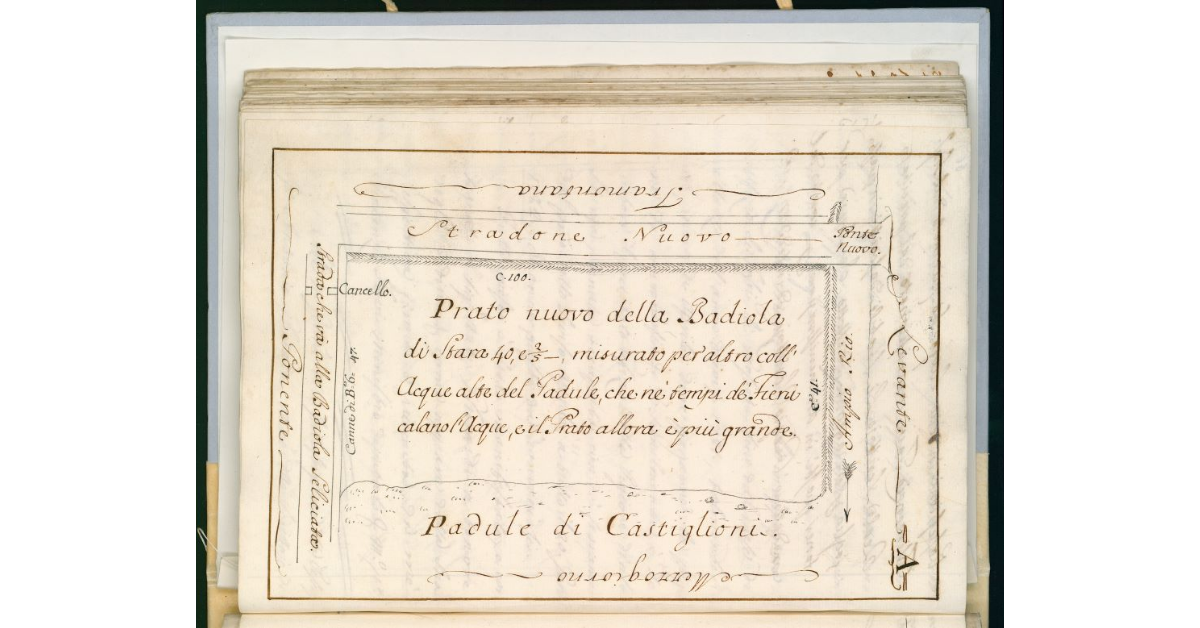 Tramontana
Stradone Nuovo
Ponte
Nuovo.
C. 100.
Cancello.
Prato nuovo della Badiola
di Stara 40, e 2/5, misurato per altro coll'
Acque alte del Padule, che nè tempi de' Fieni
calano l'Acque, e il Prato allora è più grande.
Padule di Castiglioni.
Mezzogiorno
Ponente
Strada che và alla Badiola Seliciata.
47.
C. 41.
Ampio Rio.
Levante
A